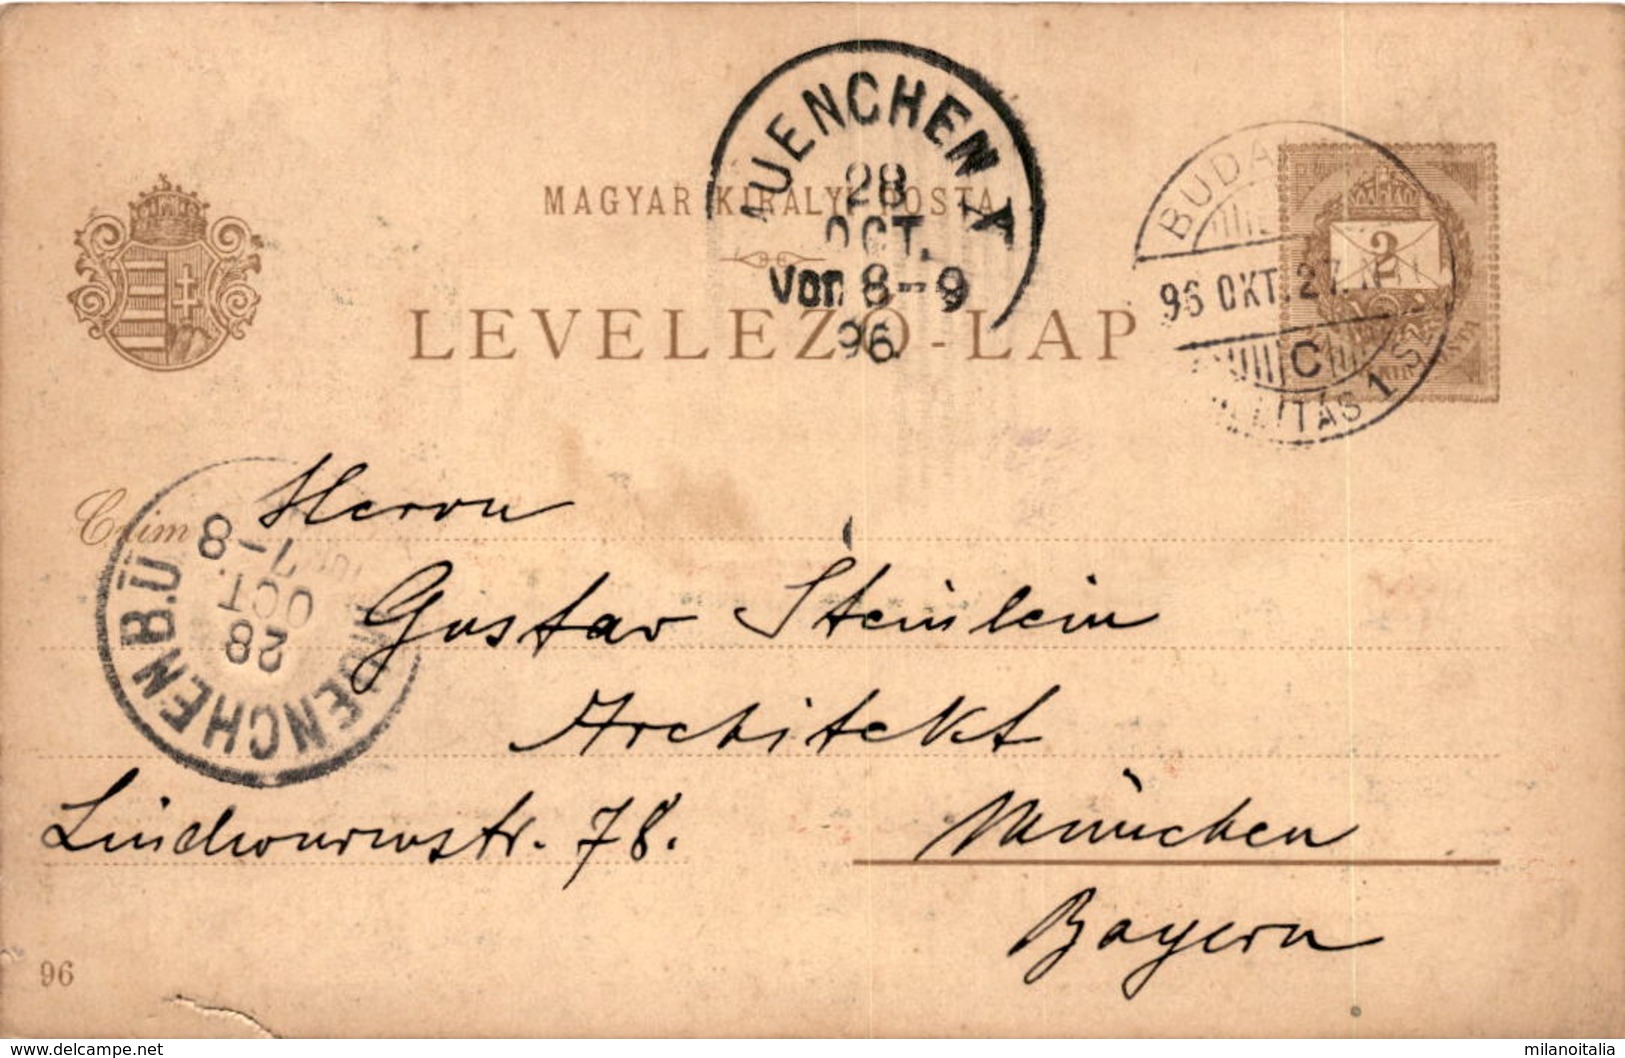 MUENCHEN X
28
OCT.
Vor 8-9
96
MAGYAR KIRÁLYI POSTA
LEVELEZŐ-LAP
BUDA
96 OKT. 27.
C
1 SZ
2
Czim
Herrn
Gustav Steinlein
Architekt
Lindwurmstr. 78.
München
Bayern
MUENCHEN B.Ü
28
OCT.
7-8
96
delcampe.net
milanoitalia